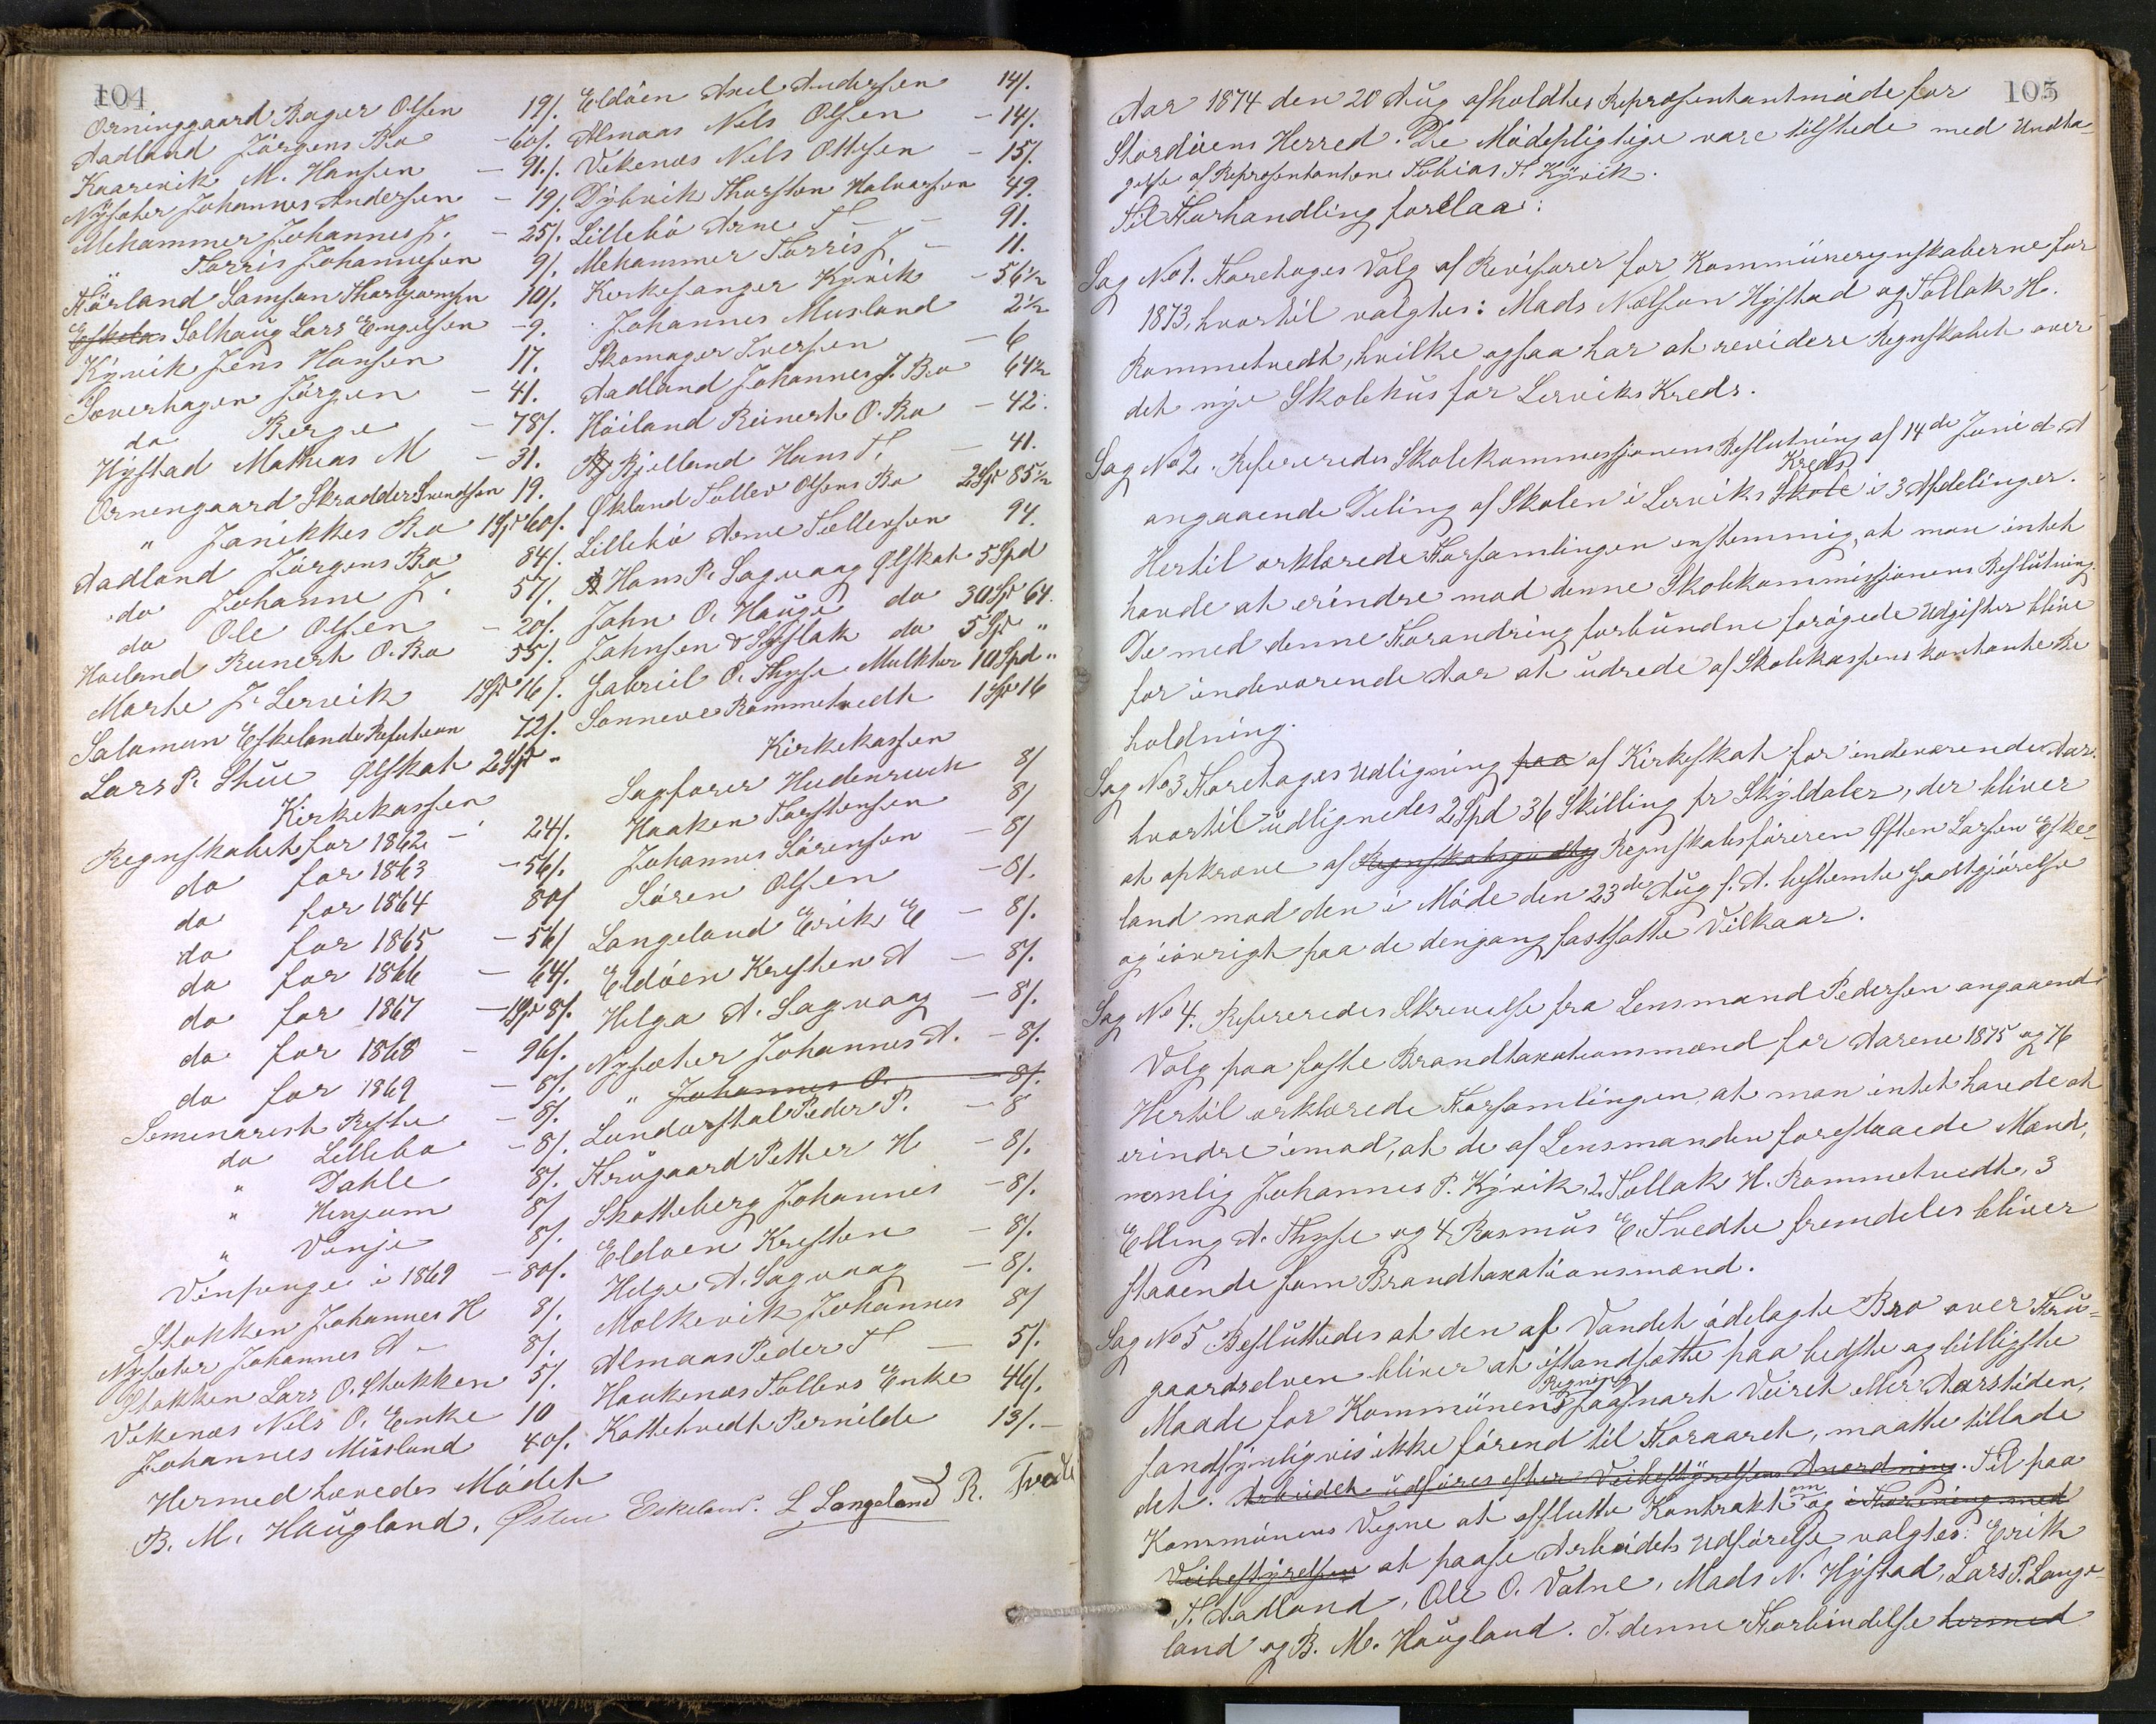 104
Örninggaard Bager Olsen 19/.
Aadland Jörgens Bo - 60/.
Kaarevik M. Hansen - 91./.
Nÿsæter Johannes Andersen - 19/.
Mehammer Johannes J. - 25/.
" Torris Johannesen 9/.
Hörland Samson Thorbjørnsen 10/.
Eskelan Solhaug Lars Engelsen - 9.
Kÿvik Jens Hansen 17.
Sæverhagen Jörgen - 41.
do Berge - 78/.
Hÿstad Mathias M - 31.
Örnengaard Skrædder Svendsen 19.
" Janikkes Bo 1 Spd 60/.
Aadland Jörgens Bo 84/.
do Johanne J. 57/.
do Ole Olsen - 20/.
Høiland Reinert O. Bo 55/.
Marte J. Lervik 1 Spd 16/.
Salamon Eskelands 72/.
Lars P. Stue Ølskat 2 Spd "
Kirkekassen
Regnskabet for 1862 - 24/.
do for 1863 - 56/.
do for 1864 80/
do for 1865 - 56/
do for 1866 - 64/.
do for 1867 - 1 Spd 8/.
do for 1868 - 96/.
do for 1869 - 8/.
Seminarist Røste - 8/.
do Lillebø - 8/.
" Dahle 8/.
" Henjum 8/
" Vinje 8/.
Vinpenge i 1869 - 80/.
Stokken Johannes H 8/.
Nÿsæter Johannes A - 8/.
Stokken Lars O. Stokken 5/.
Vikenæs Nels O. Enke 10
Johannes Misslund 40/.
Hermed hævedes Mödet
B. M. Haugland. Østen Eskeland. L Langeland R. Tvedt
Eldöen Axel Andersen 14/.
Almaas Nels Olsen - 14/.
Vikenæs Nels Ottesen - 15/.
Dÿbvik Thorsten Halvorsen 49.
Lillebö Arne T - 91.
Mehammer Torris J - 11.
Kirkesanger Kÿvik - 56½
Johannes Musland 2½
Skomager Iversen - 6
Aadland Johannes J. Bo 64½
Höiland Reinert O. Bo - 42.
Bjelland Hans T. - 41.
Økland Tollev Olsens Bo 2 Spd 85½
Lillebö Arne Tollevsen 94.
Hans P. Sagvaag Ølskat 5 Spd
John O. Hauge do 30 Spd 64.
Johnsen & do 5 Spd "
Gabriel O. Thyse Mulkter 10 Spd "
Sønneve Rommetvedt 1 Spd 16
Kirkekassen
Sagfører 8/
Haaken Torstensen 8/
Johannes Sörensen - 8/
Sören Olsen - 8/.
Langeland Erik E - 8/.
Eldöen Kresten A - 8/.
Helga A. Sagvaag - 8/.
Nÿsæter Johannes A. - 8/.
" Johannes O. - 8/.
Lundarstøl Peder P. - 8
Frugaard Petter H - 8/.
Skotteberg Johannes - 8/.
Eldöen Kresten - 8/.
Helge A. Sagvaag - 8/.
Molkevik Johannes 8/
Almaas Peder T - 5/.
Haukenæs Tollevs Enke 46/.
Kattetvedt Pernilde 13/.-
105
Aar 1874 den 20 Aug afholdtes Repræsentantmöde for
Stordöens Herred. De Mödepligtige vare tilstede med Undta-
gelse af Repræsentantene Tobias T. Kÿvik.
Til Forhandling forelaa:
Sag No 1. Foretoges Valg af Revisorer for Kommüneregnskaberne for
1873, hvortil valgtes: Mads Nelson Hÿstad og Tollak H.
Rommetvedt, hvilke ogsaa har at revidere Regnskabet over
det nye Skolehus for Lerviks Kreds.
Sag No 2. Refereredes Skolekommissionens Beslutning af 14de Juni d. A
angaaende Deling af Skolen i Lerviks Skole Kreds i 3 Afdelinger.
Hertil erklærede Forsamlingen enstemmig, at man intet
havde at erindre mod denne Skolekommissionens Beslutning.
De med denne Forandring forbundne forögede Udgifter blive
for indeværende Aar at udrede af Skolekassens kontante Be
holdning.
Sag No 3 Foretoges Udligning paa af Kirkeskat for indeværende Aar.
hvortil udlignedes 2 Spd 36 Skilling pr Skÿldaler, der bliver
at opkræve af Regnskabsgodtg Regnskabsföreren Østen Larsen Eske-
land mod den i Möde den 23de Aug f. A. bestemte Godtgjörelse
og iövrigt paa de dengang fastsatte Vilkaar.
Sag No 4. Refereredes Skrivelse fra Lensmand Pedersen angaaende
Valg paa faste Brandtaxationsmænd for Aarene 1875 og 76
Hertil erklærede Forsamlingen, at man intet havde at
erindre imod, at de af Lensmanden foreslaaede Mænd,
nemlig Johannes P. Kÿvik, 2. Tollak H. Rommetvedt, 3
Elling A. Thyse og 4. Rasmus E. Tvedte fremdeles bliver
staaende som Brandtaxationsmænd.
Sag No 5 Besluttedes at den af Vandet ödelagte Bro over Fru-
gaardselven bliver at istandsætte paa bedste og billigste
Maade for Kommünens Regning saasnart Veiret eller Aarstiden,
sandsÿnligvis ikke förend til Foraaret, maatte tillade
det. Arbeidet udföres efter Veibestÿrelsens Anordning. Til paa
Kommünens Vegne at afslutte Kontrakt om og i Forening med
Veibestÿrelsen at paase Arbeidets Udförelse valgtes: Erik
T. Aadland, Ole O. Vatne, Mads N. Hÿstad, Lars P. Lange-
land og B. M. Haugland. I denne Forbindelse hermed